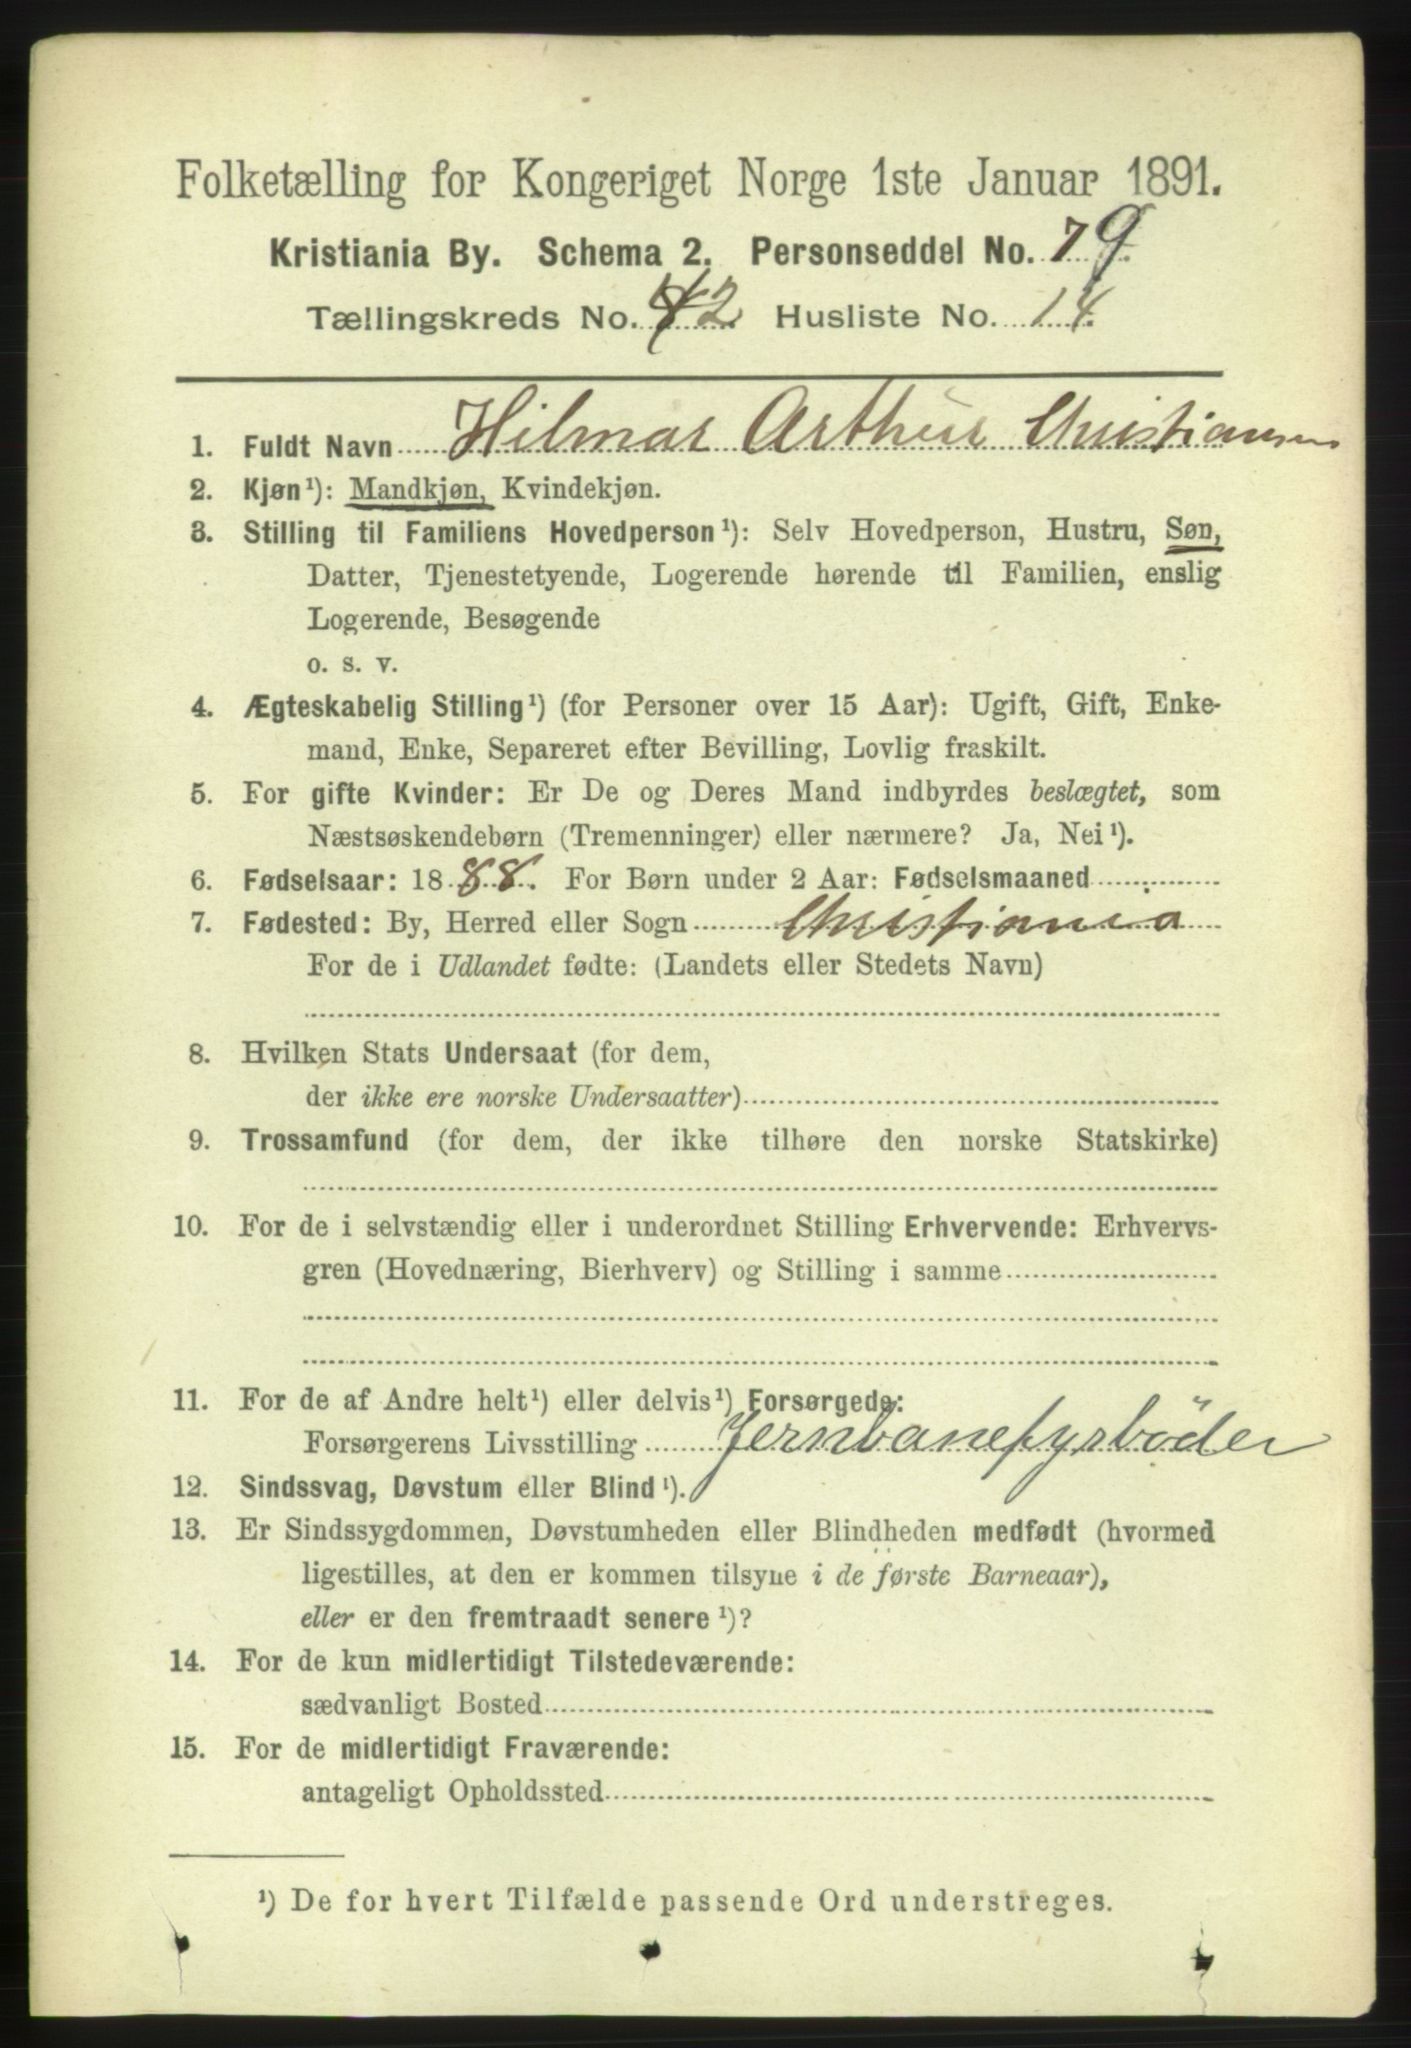 Folketælling for Kongeriget Norge 1ste Januar 1891.
Kristiania By. Schema 2. Personseddel No. 79.
Tællingskreds No. 42. Husliste No. 14.
1. Fuldt Navn Hilmar Arthur Christiansen
2. Kjøn¹): Mandkjøn, Kvindekjøn.
3. Stilling til Familiens Hovedperson¹): Selv Hovedperson, Hustru, Søn,
Datter, Tjenestetyende, Logerende hørende til Familien, enslig
Logerende, Besøgende
o. s. v.
4. Ægteskabelig Stilling¹) (for Personer over 15 Aar): Ugift, Gift, Enke-
mand, Enke, Separeret efter Bevilling, Lovlig fraskilt.
5. For gifte Kvinder: Er De og Deres Mand indbyrdes beslægtet, som
Næstsøskendebørn (Tremenninger) eller nærmere? Ja, Nei¹).
6. Fødselsaar: 1888. For Børn under 2 Aar: Fødselsmaaned
7. Fødested: By, Herred eller Sogn Christiania
For de i Udlandet fødte: (Landets eller Stedets Navn)
8. Hvilken Stats Undersaat (for dem,
der ikke ere norske Undersaatter)
9. Trossamfund (for dem, der ikke tilhøre den norske Statskirke)
10. For de i selvstændig eller i underordnet Stilling Erhvervende: Erhvervs-
gren (Hovednæring, Bierhverv) og Stilling i samme
11. For de af Andre helt¹) eller delvis¹) Forsørgede:
Forsørgerens Livsstilling Jernbanefyrböder
12. Sindssvag, Døvstum eller Blind¹).
13. Er Sindssygdommen, Døvstumheden eller Blindheden medfødt (hvormed
ligestilles, at den er kommen tilsyne i de første Barneaar),
eller er den fremtraadt senere¹)?
14. For de kun midlertidigt Tilstedeværende:
sædvanligt Bosted
15. For de midlertidigt Fraværende:
antageligt Opholdssted
¹) De for hvert Tilfælde passende Ord understreges.